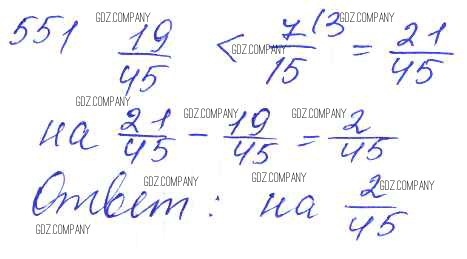 551 19/45 < 7/15 (3 = 21/45
на 21/45 - 19/45 = 2/45
Ответ: на 2/45
GDZ.COMPANY
GDZ.COMPANY
GDZ.COMPANY
GDZ.COMPANY
GDZ.COMPANY
GDZ.COMPANY
GDZ.COMPANY
GDZ.COMPANY
GDZ.COMPANY
GDZ.COMPANY